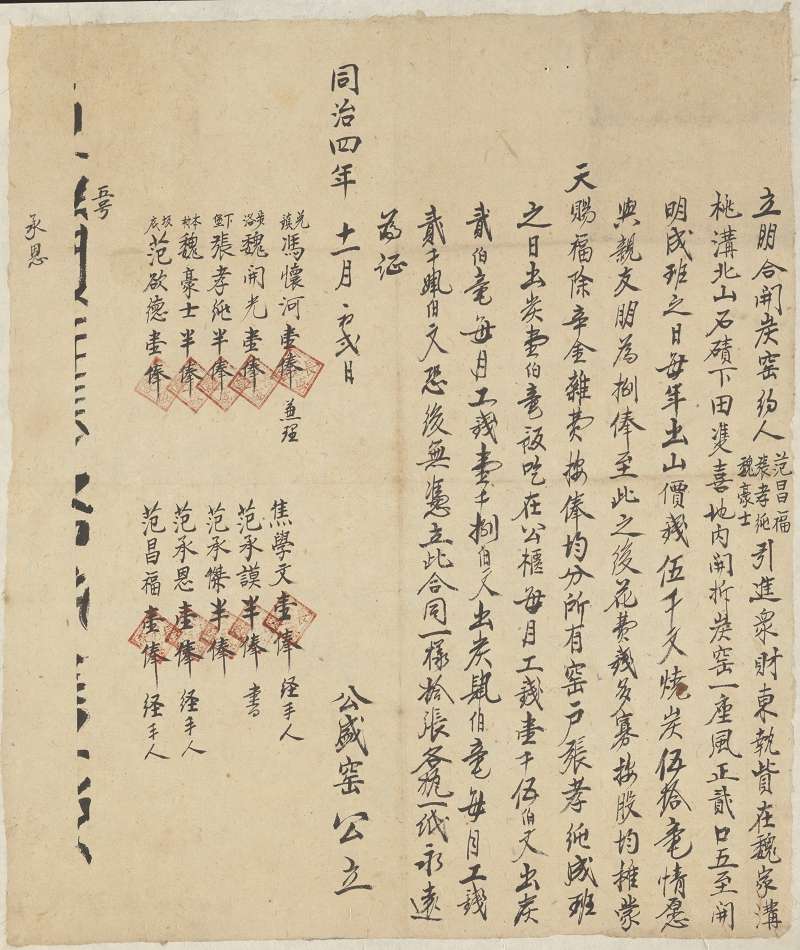 立明合開炭窑約人范昌福張孝純魏豪士引進衆財東執貲在魏家溝
桃溝北山石磧下田進喜地内開折炭窑一座風正貳口五至開
明成班之日每年出山價錢伍千文燒炭伍拾毫情愿
與親友朋為捌俸至此之後花費錢多寡按股均摊蒙
天賜福除辛金雜費按俸均分所有窑戸張孝純成班
之日出炭壹伯毫飯吃在公櫃每月工錢壹千伍伯文出炭
貳伯毫每月工錢壹千捌伯文出炭肆伯毫每月工錢
貳千肆伯文恐後無憑立此合同一樣拾張各执一纸永遠
為証
同治四年 十一月 初貳日
公盛窑公立
馮懷河壹俸 兼理
魏開光壹俸
下堡張孝純半俸
魏豪士半俸
坂底范欲德壹俸
焦學文壹俸 経手人
范承謨半俸 書
范承傑半俸
范承恩壹俸 経手人
范昌福壹俸 経手人
五号
承恩